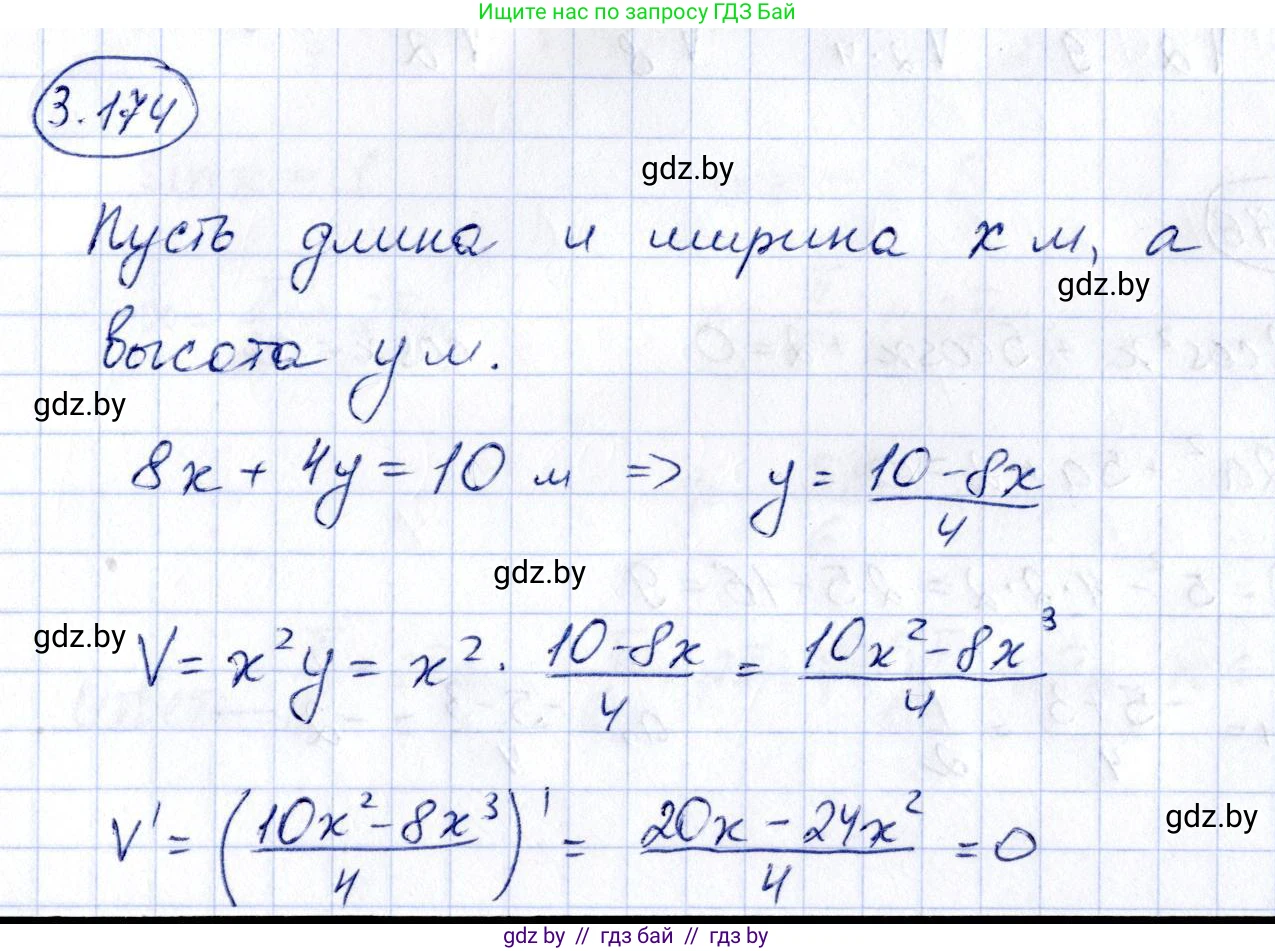 Ищите нас по запросу ГДЗ Бай
3.174
gdz.by
Пусть длина и ширина x м, а
gdz.by
высота y м.
gdz.by
8x + 4y = 10 м => y = (10 - 8x)/4
gdz.by
gdz.by
V = x² y = x² · (10 - 8x)/4 = (10x² - 8x³)/4
V' = ((10x² - 8x³)/4)' = (20x - 24x²)/4 = 0
gdz.by
gdz by // гдз бай // gdz by